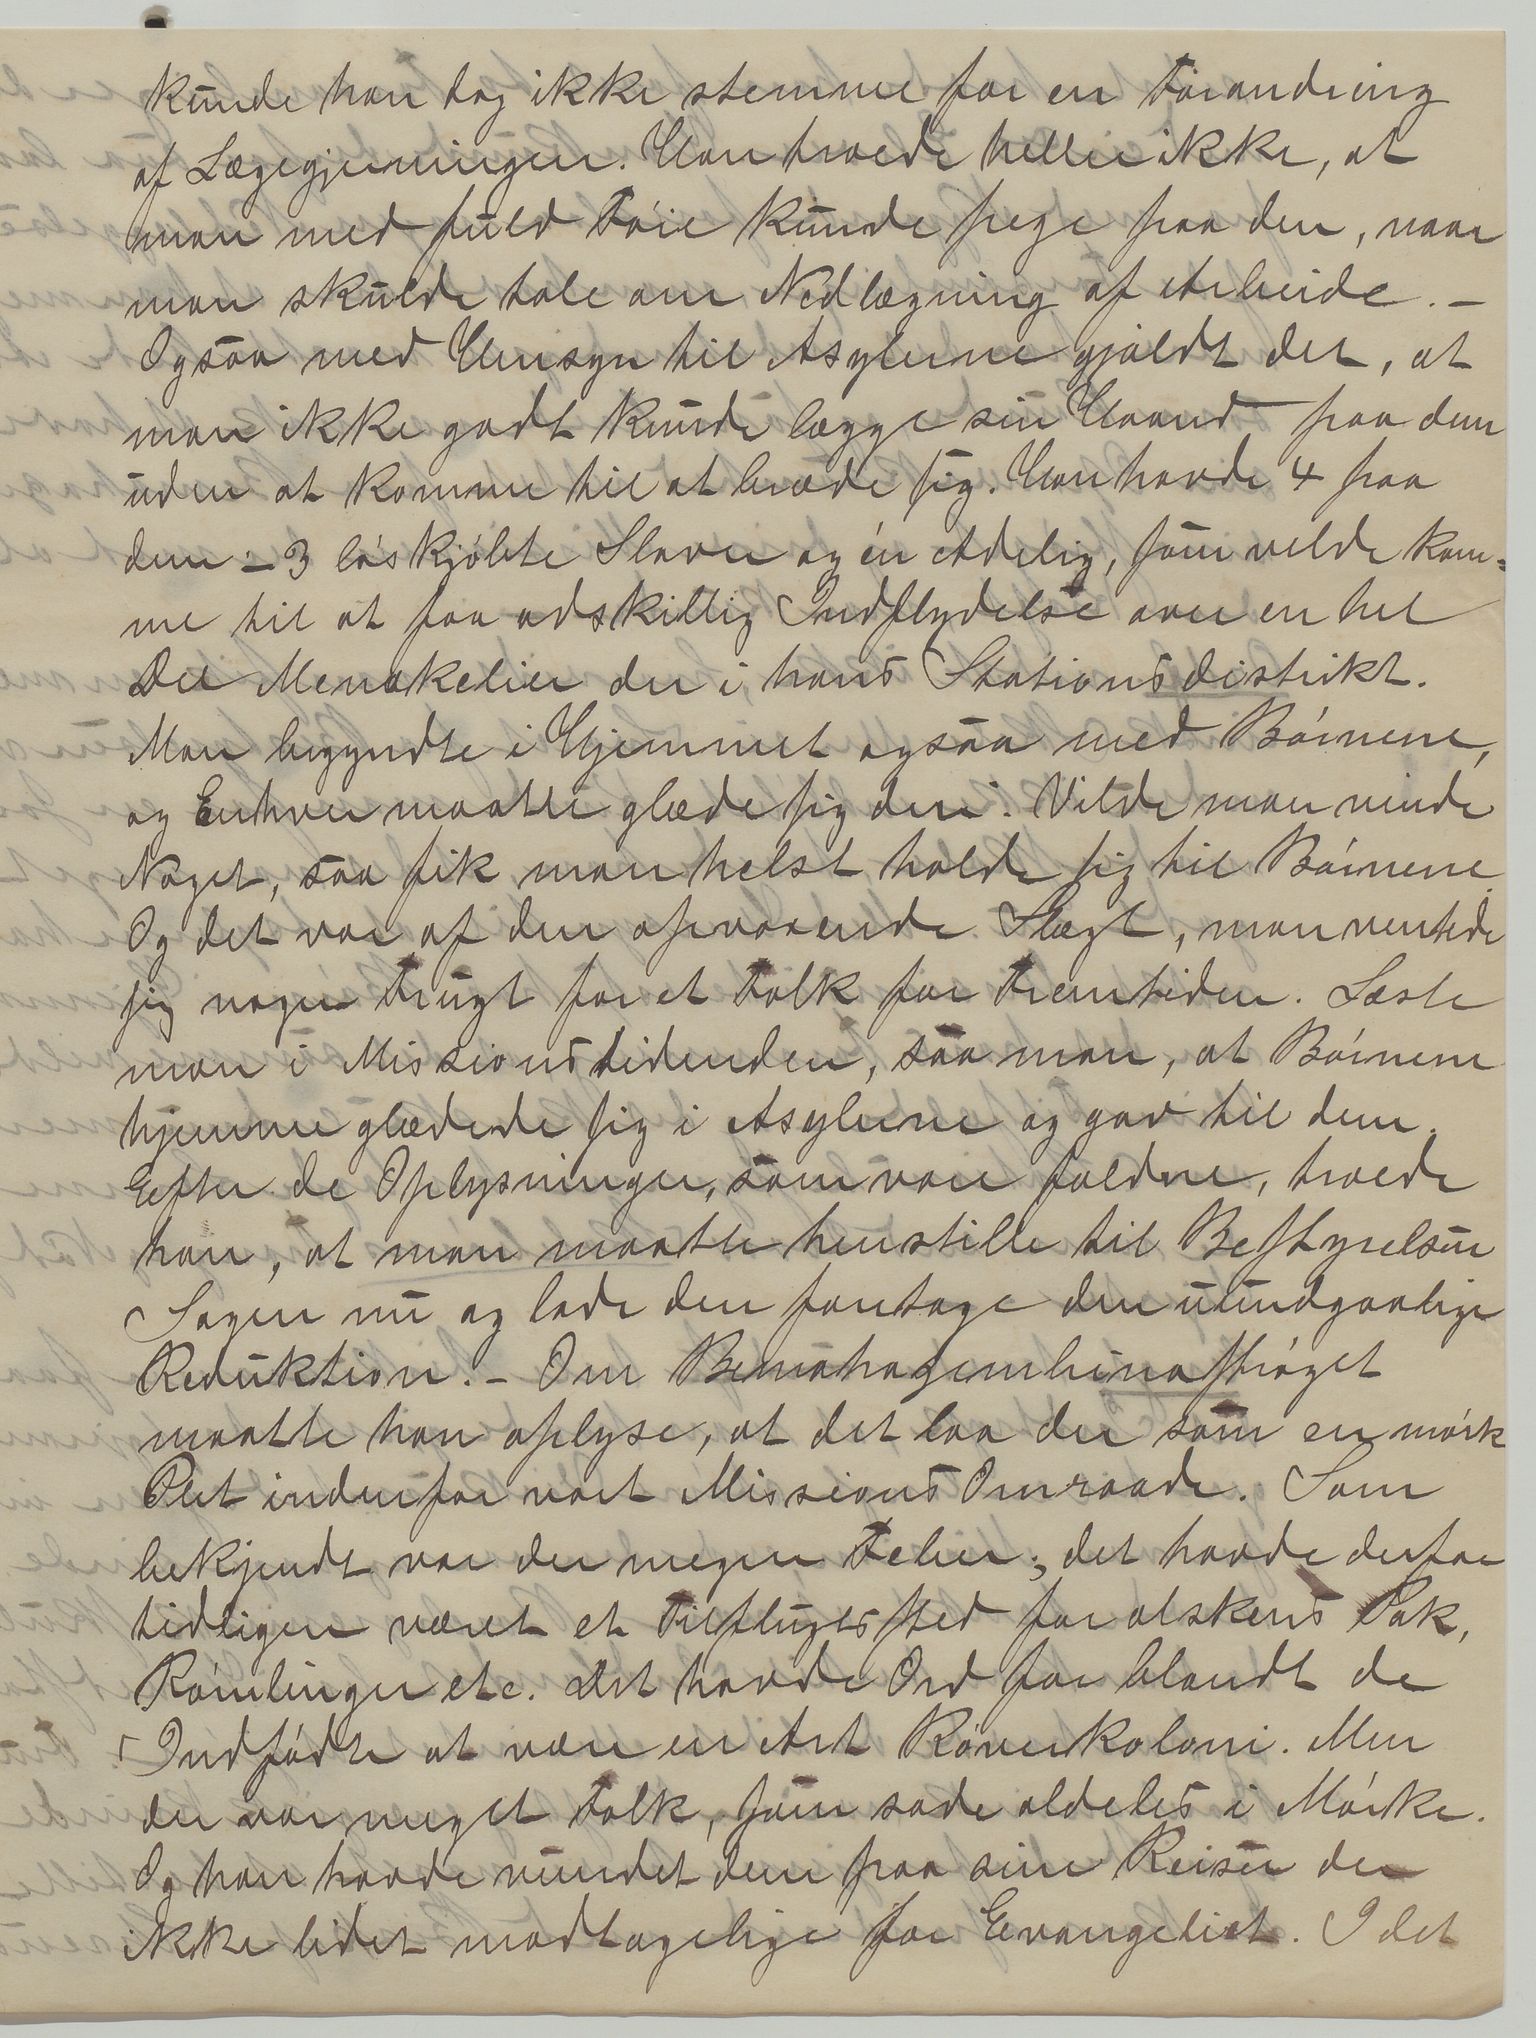 kunde han dog ikke stemme for en Forandring
af Lægegjerningen. Han troede heller ikke, at
man med fuld Föie kunde pege paa den, naar
man skulde tale om Nedlægning af Arbeide. –
Ogsaa med Hensyn til Asylerne gjaldt det, at
man ikke godt kunde lægge sin Haand paa dem
uden at komme til at bræde sig. Han havde 4 paa
dem – 3 löskjöbte Slaver og én Adelig, som vilde kom=
me til at faa adskillig Indflydelse over en hel
Del Mennskelier der i hans Stationsdistrikt.
Man begyndte i Hjemmet ogsaa med Börnene,
og Enhver maatte glæde sig deri. Vilde man vinde
Noget, saa fik man helst holde sig til Börnene.
Og det var af den opvoxende Slægt, man ventede
sig nogen Frugt for et Folk for Fremtiden. Læste
man i Missionstidenden, saa man, at Börnene
hjemme glædede sig i Asylerne og gav til dem.
Efter de Oplysninger, som vare faldne, troede
han, at man maatte henstille til Bestyrelsen
Sagen nu og lade den foretage den uundgaalige
Reduktion. – Om Bemahazembinaströget
maatte han oplyse, at det laa der som en mörk
Plet indenfor vort Missions Omraade. Som
bekjendt var der megen Feber; det havde derfor
tidligere været et Tilflugtssted for alskens Pak,
Römlinger etc. Det havde Ord for blandt de
Indfödte at være en Art Röverkoloni. Men
der var meget Folk, som sade aldeles i Mörke.
Og han havde vundet dem paa sine Reiser der
ikke lidet modtagelige for Evangeliet. I det